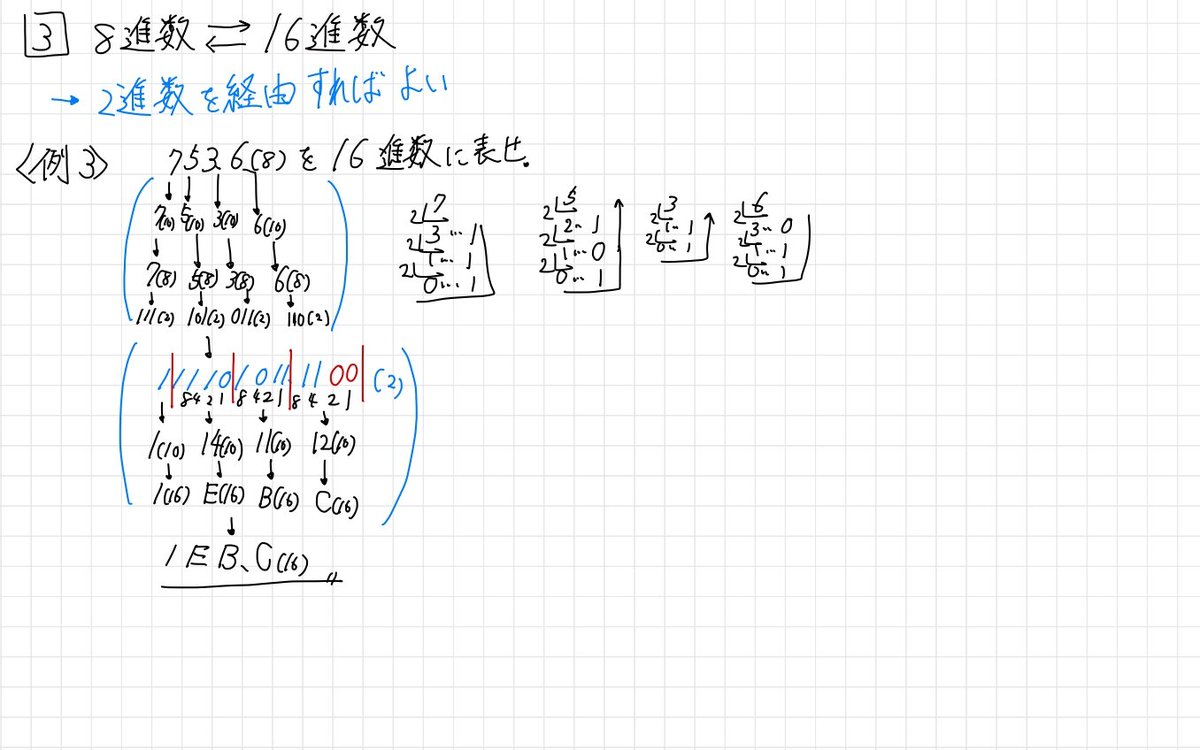 3 8進数 ⇄ 16進数
→ 2進数を経由すればよい
<例3> 753.6(8)を16進数に表せ.
7(10) 5(10) 3(10) 6(10)
7(8) 5(8) 3(8) 6(8)
111(2) 101(2) 011(2) 110(2)
2 7
2 3…1
2 1…1
0…1
2 5
2 2…1
2 1…0
0…1
2 3
2 1…1
0…1
2 6
2 3…0
2 1…1
0…1
1|1110|1011.|1100|(2)
8421 8421 8421
1(10) 14(10) 11(10) 12(10)
1(16) E(16) B(16) C(16)
1EB、C(16)